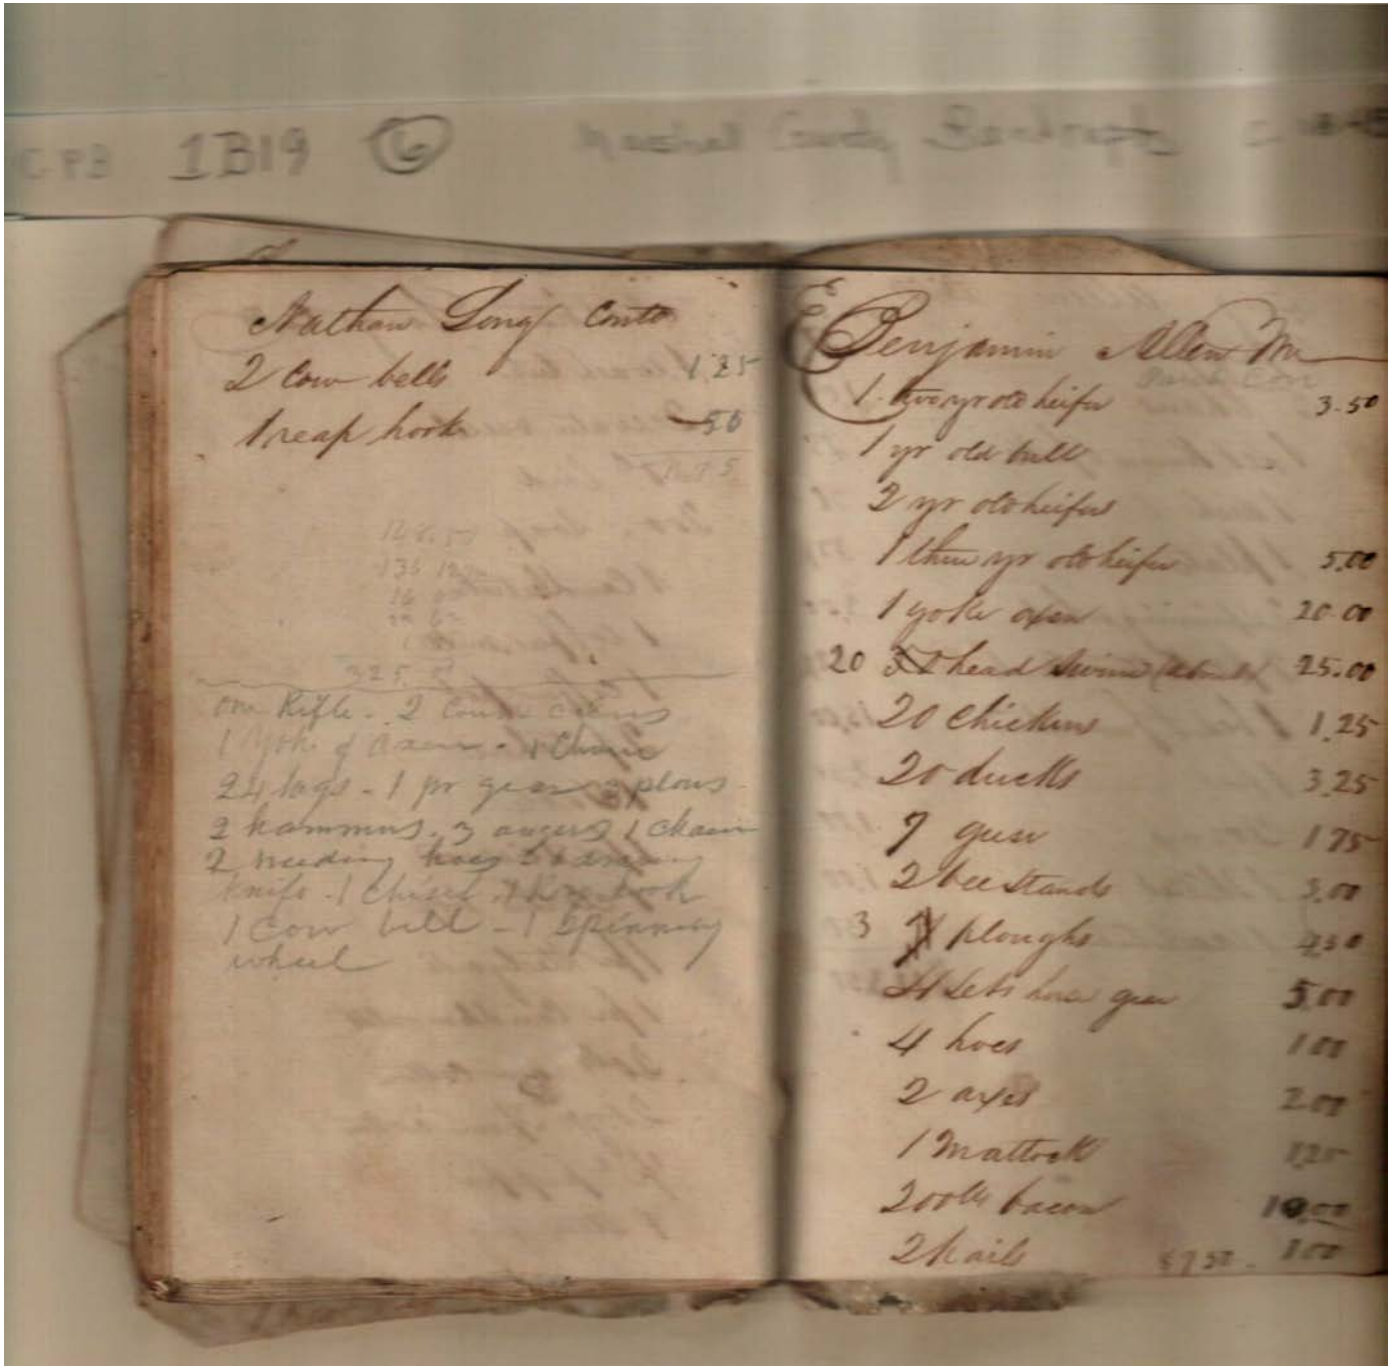 1B19 6 Marshal County Bankrupts
Nathan Long Contd
2 Cow bells 1.25
1 reap hook 50
325
one Rifle - 2
1 Yoke of oxen - 1
24 hogs - 1 pr gear plows
2 hammers. 3 augers 1 chain
2 weeding hoes
knife - 1 chisel
1 Cow bell - 1 Spinning
wheel
Benjamin Allen
1 two yr old heifer 3.50
1 yr old bull
2 yr old heifers
1 three yr old heifer 5.00
1 yoke oxen 20.00
20 head swine (about) 25.00
20 chickens 1.25
20 ducks 3.25
7 geese 1 75
2 bee stands 3.00
3 ploughs 4.50
4 sets horse gear 5.00
4 hoes 1 00
2 axes 2 00
1 Mattock 1.25
200 lb bacon 10.00
2 pails 1 00